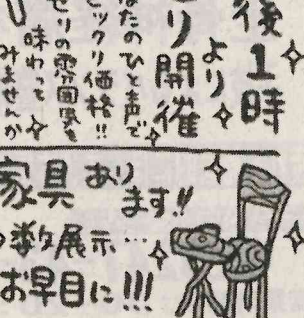 後1時
より
り開催
なたのひと声で
ビックリ価格!!
せりの雰囲気を
味わって
みませんか
家具あり
ます!!
数展示…
お早目に!!!